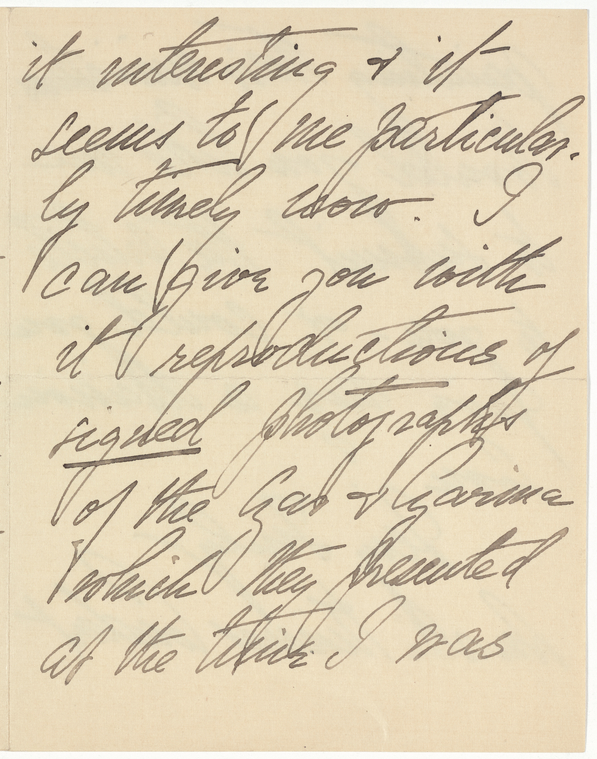 it interesting & it
seems to me particular-
ly timely now. I
can give you with
it reproductions of
signed photographs
of the Czar & Czarina
which they presented
at the time I was